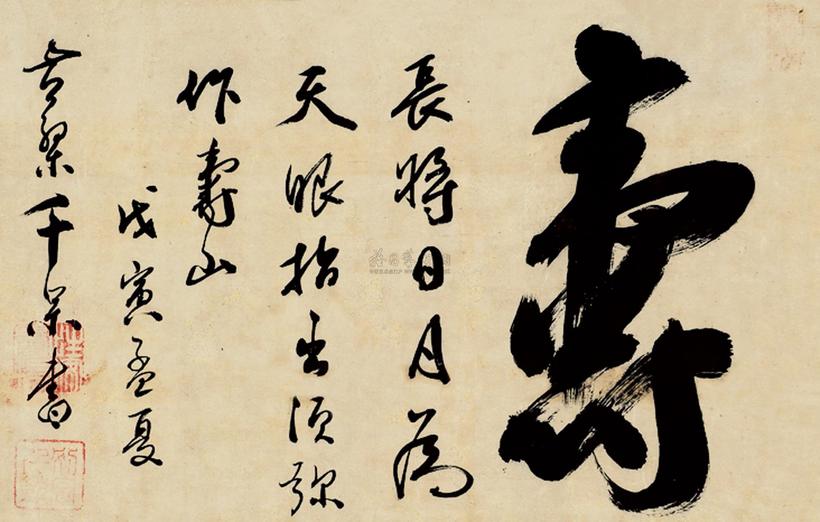 壽
長將日月為
天眼指出須彌
作壽山
戊寅孟夏
古黎千呆書